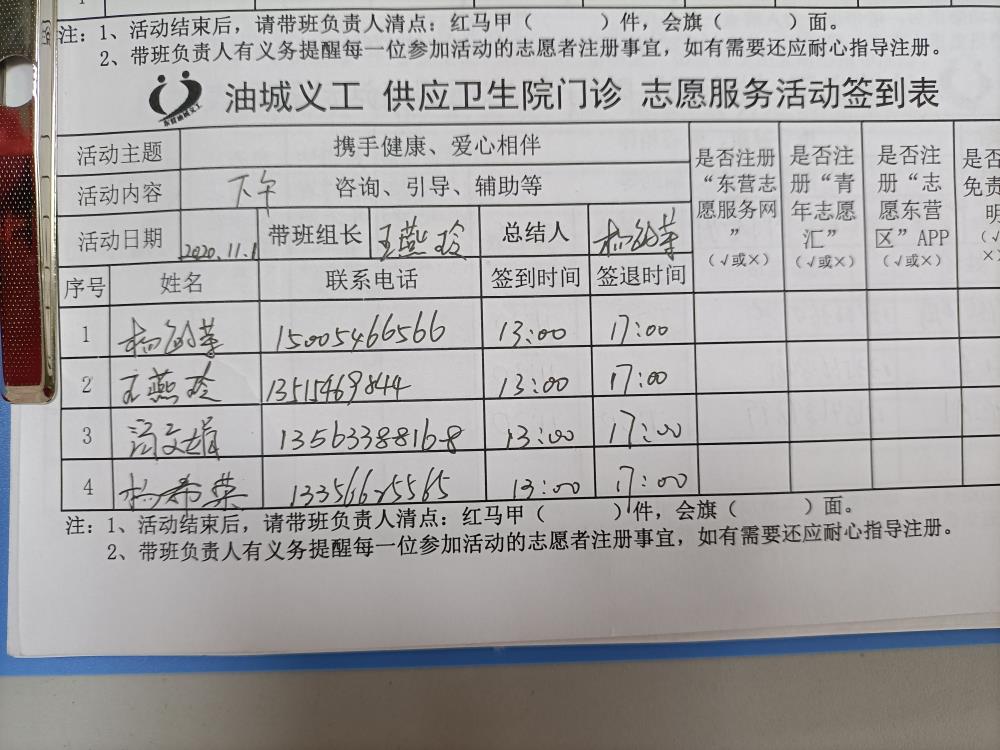 注：1、活动结束后，请带班负责人清点：红马甲（ ）件，会旗（ ）面。
2、带班负责人有义务提醒每一位参加活动的志愿者注册事宜，如有需要还应耐心指导注册。
油城义工 供应卫生院门诊 志愿服务活动签到表
活动主题 携手健康、爱心相伴 是否注册“东营志愿服务网”（√或×） 是否注册“青年志愿汇”（√或×） 是否注册“志愿东营区”APP（√或×） 是否 免责 明 （√ ×）
活动内容 下午 咨询、引导、辅助等
活动日期 2020.11.1 带班组长 王燕玲 总结人
序号 姓名 联系电话 签到时间 签退时间
1 15005466566 13:00 17:00
2 王燕玲 13515469844 13:00 17:00
3 冯文娟 13563388168 13:00 17:00
4 杨希荣 13356625565 13:00 17:00
注：1、活动结束后，请带班负责人清点：红马甲（ ）件，会旗（ ）面。
2、带班负责人有义务提醒每一位参加活动的志愿者注册事宜，如有需要还应耐心指导注册。